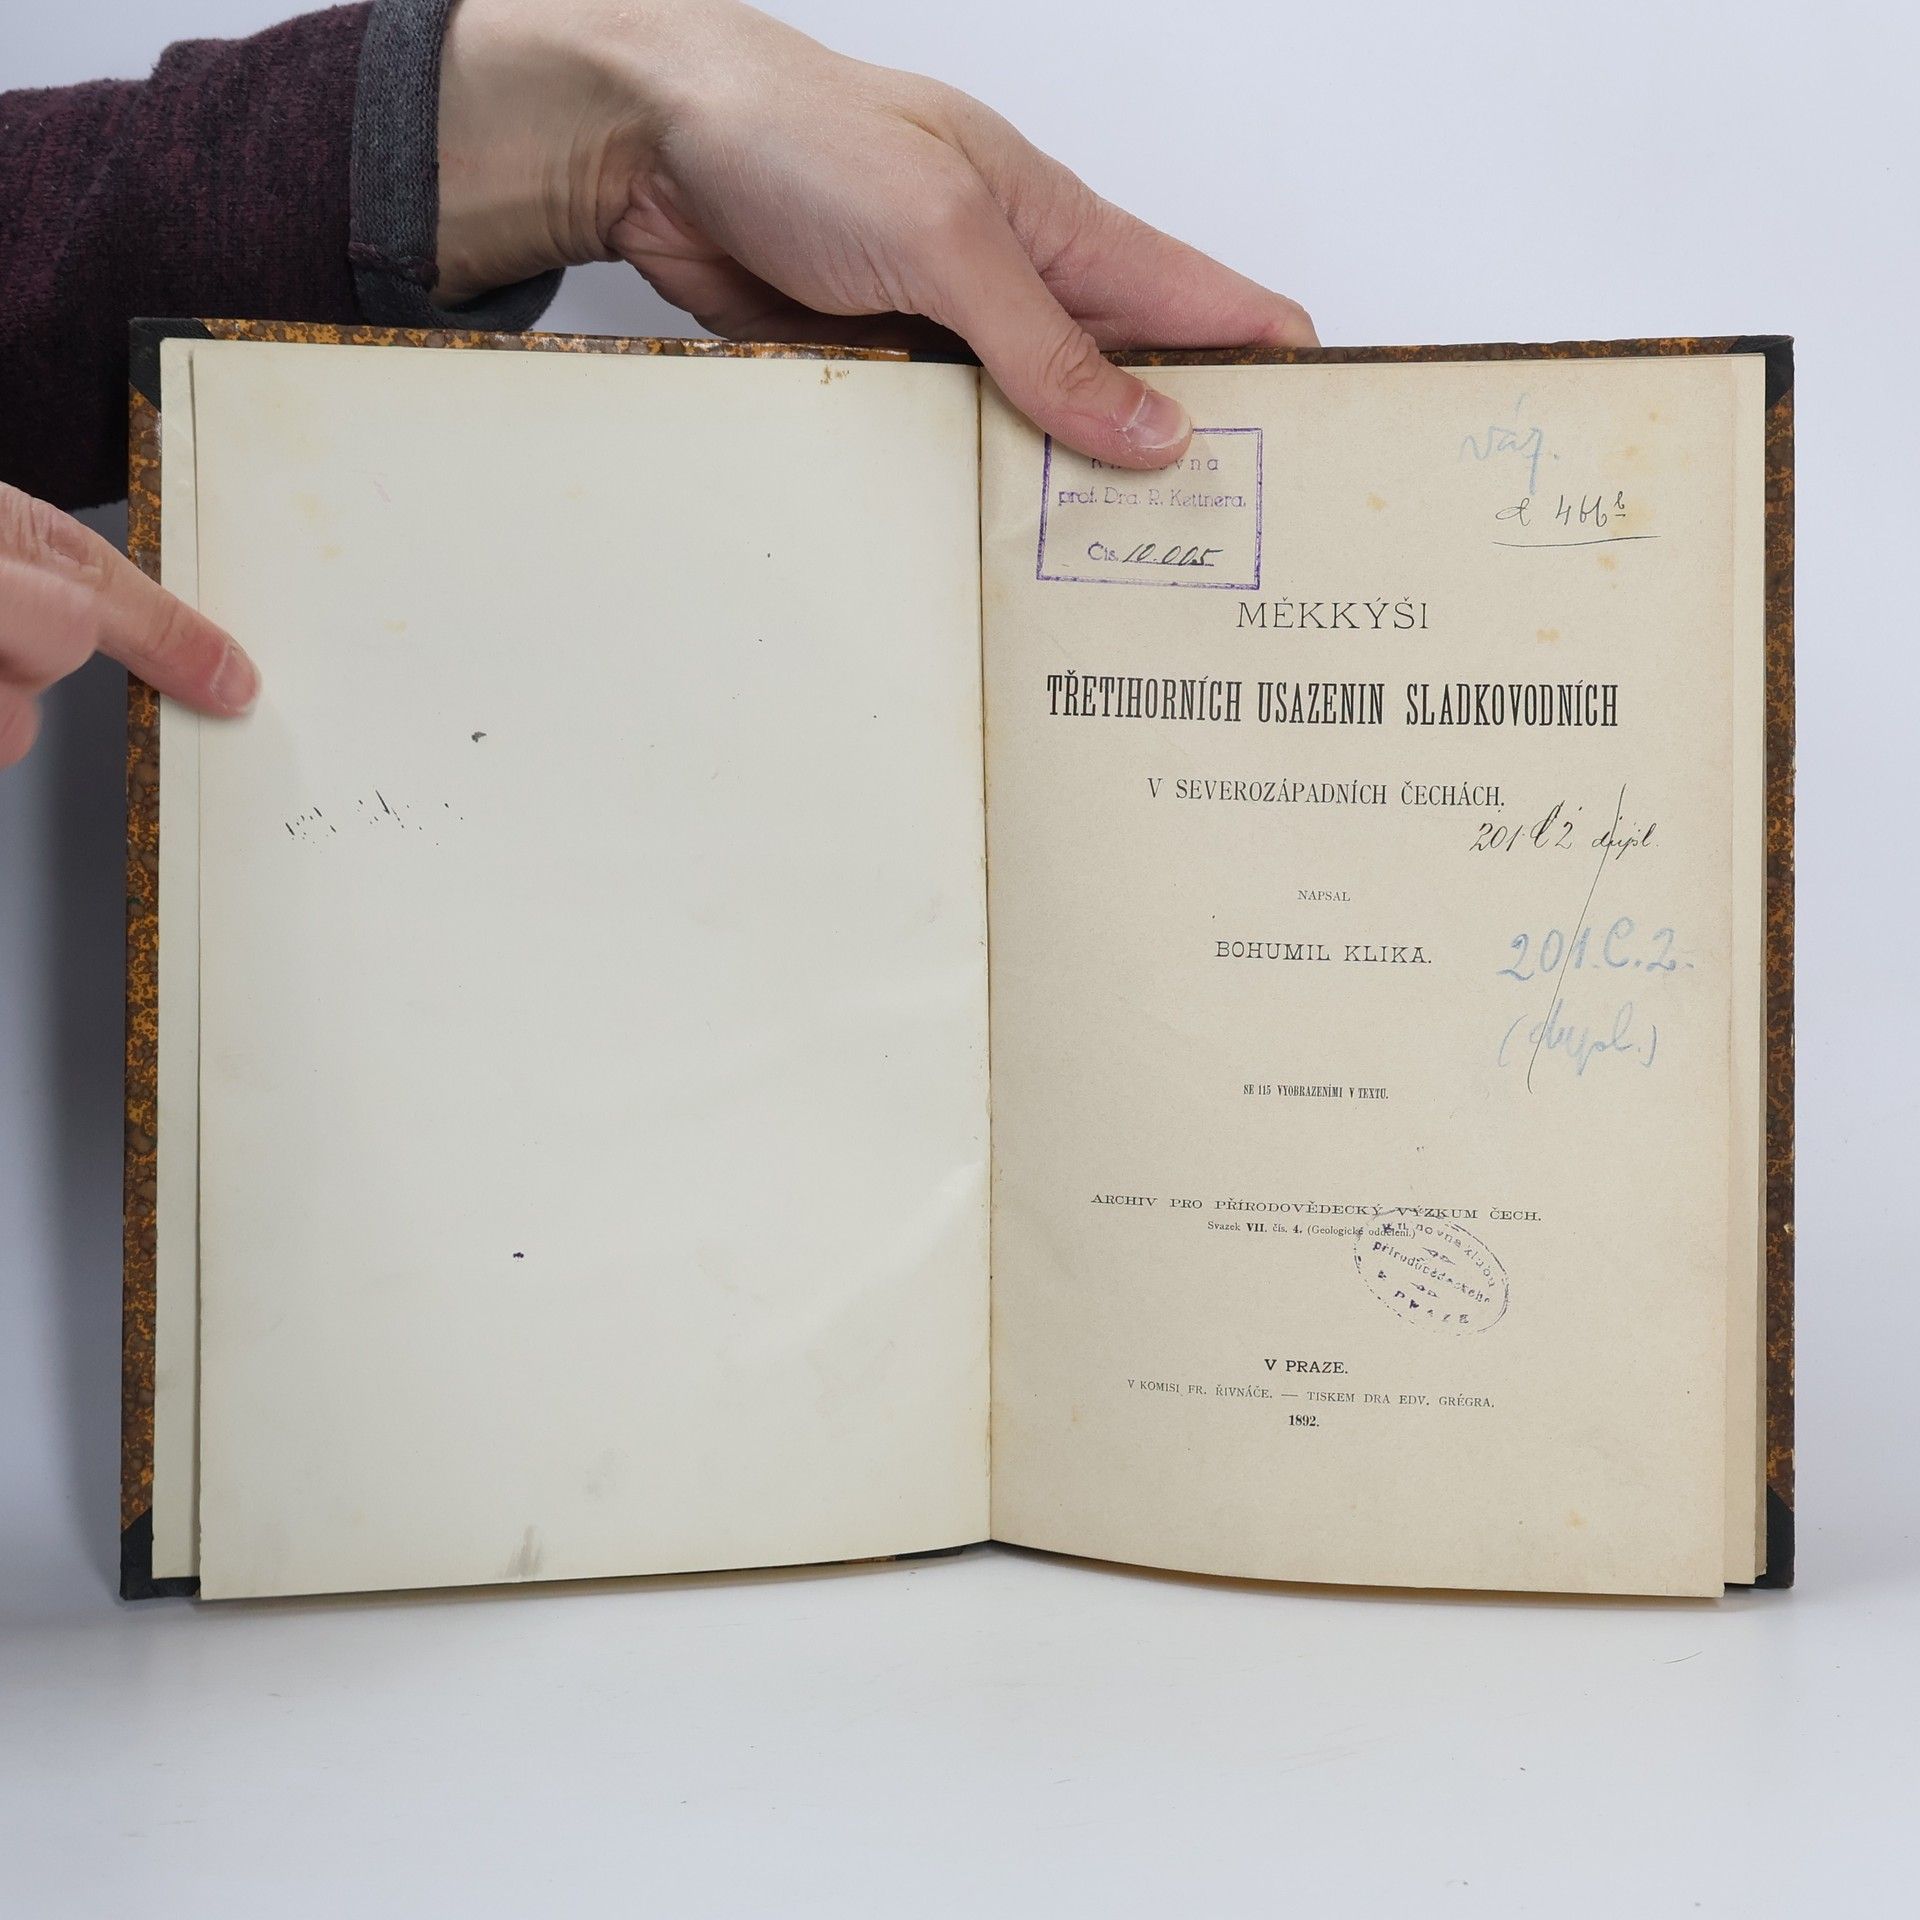 prof. Dra. R. Kettnera.
Čís. 10.005
váz.
d 466 b
MĚKKÝŠI
TŘETIHORNÍCH USAZENIN SLADKOVODNÍCH
V SEVEROZÁPADNÍCH ČECHÁCH.
201 C 2 dupl.
NAPSAL
BOHUMIL KLIKA.
201.C.2.
(dupl.)
SE 115 VYOBRAZENÍMI V TEXTU.
ARCHIV PRO PŘÍRODOVĚDECKÝ VÝZKUM ČECH.
Svazek VII. čís. 4. (Geologické oddělení.)
Knihovna klubu
přírodovědeckého
v Praze
V PRAZE.
V KOMISI FR. ŘIVNÁČE. — TISKEM DRA EDV. GRÉGRA.
1892.